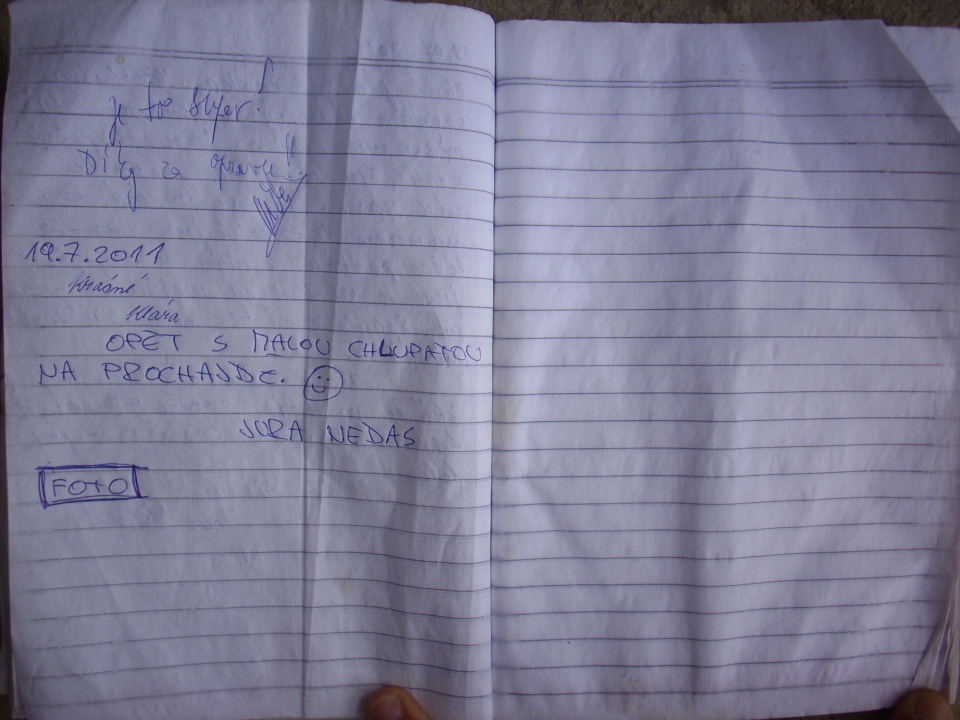 je to super!
Díky za opravu!!
19.7.2011
krásné
Klára
OPĚT S MALOU CHLUPATOU
NA PROCHAJDĚ.
JURA NEDAS
FOTO